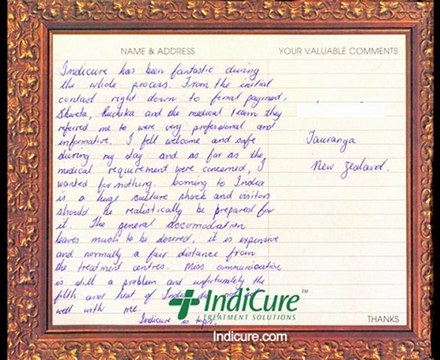 NAME & ADDRESS
YOUR VALUABLE COMMENTS
Indicure has been fantastic during
the whole process. From the initial
contact right down to final payment.
Shweta, Ruchika and the medical team they
referred me to were very professional and
informative. I felt welcome and safe
during my stay and as far as the
medical requirement were concerned, I
wanted for nothing. Coming to India
is a huge culture shock and visitors
should be realistically be prepared for
it. The general accomodation
leaves much to be desired, it is expensive
and normally a fair distance from
the treatment centres. Miss communication
is still a problem and unfortunately the
filth and heat of India
well with me.
Indicure is tops.
Tauranga
New Zealand.
IndiCure™
TREATMENT SOLUTIONS
THANKS
Indicure.com